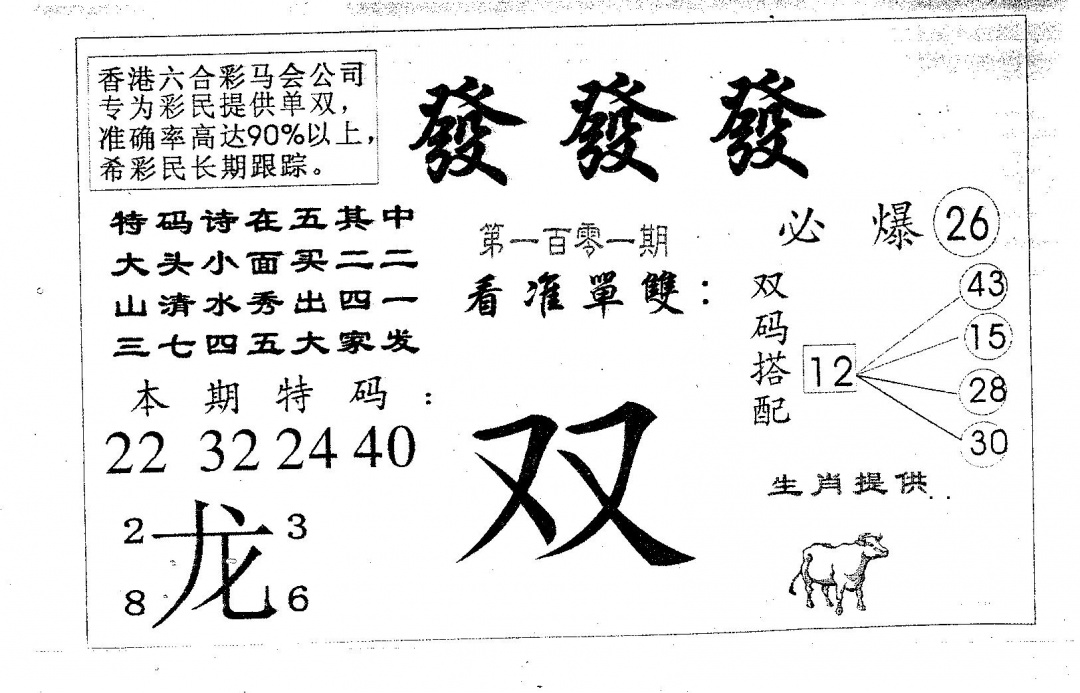 香港六合彩马会公司
专为彩民提供单双，
准确率高达90%以上，
希彩民长期跟踪。
發發發
特码诗在五其中
大头小面买二二
山清水秀出四一
三七四五大家发
第一百零一期
看准單雙：
必爆26
双码搭配
12
43
15
28
30
本期特码：
22 32 24 40
2 3
龙
8 6
双
生肖提供..